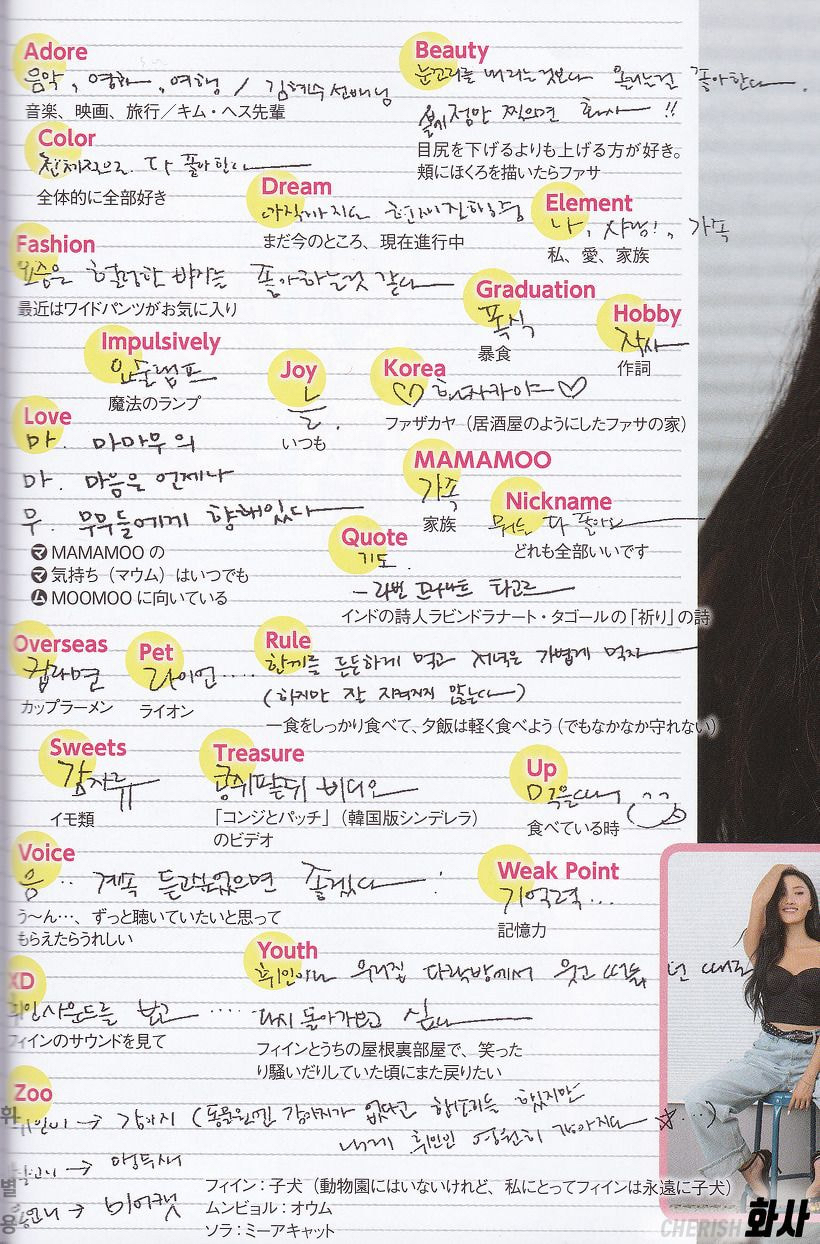 Adore
음악, 영화, 여행 / 김혜수 선배님
音楽、映画、旅行／キム・ヘス先輩
Beauty
눈꼬리를 내리는것보다 올리는걸 좋아한다.
볼에 점만 찍으면 화사 !!
目尻を下げるよりも上げる方が好き。
頬にほくろを描いたらファサ
Color
전체적으로 다 좋아한다
全体的に全部好き
Dream
아직까지는 현재진행중
まだ今のところ、現在進行中
Element
나, 사랑!, 가족
私、愛、家族
Fashion
요즘은 헐렁한 바지를 좋아하는것 같다
最近はワイドパンツがお気に入り
Graduation
폭식
暴食
Hobby
작사
作詞
Impulsively
요술램프
魔法のランプ
Joy
늘.
いつも
Korea
♡ 화자카야 ♡
ファザカヤ（居酒屋のようにしたファサの家）
Love
마. 마마무의
마. 마음은 언제나
무. 무무들에게 향해있다
マ MAMAMOO の
マ 気持ち（マウム）はいつでも
ム MOOMOO に向いている
MAMAMOO
가족
家族
Nickname
뭐든 다 좋아요
どれも全部いいです
Quote
기도.
- 라빈드라나트 타고르
インドの詩人ラビンドラナート・タゴールの「祈り」の詩
Overseas
컵라면
カップラーメン
Pet
라이언....
ライオン
Rule
한끼를 든든하게 먹고 저녁은 가볍게 먹자
(하지만 잘 지켜지지 않는다)
一食をしっかり食べて、夕飯は軽く食べよう（でもなかなか守れない）
Sweets
감자류
イモ類
Treasure
콩쥐팥쥐 비디오
「コンジとパッチ」（韓国版シンデレラ）
のビデオ
Up
먹을때
食べている時
Voice
음.. 계속 듣고싶었으면 좋겠다 !
う〜ん…、ずっと聴いていたいと思って
もらえたらうれしい
Weak Point
기억력...
記憶力
XD
휘인사운드를 보고 .....
フィインのサウンドを見て
Youth
휘인이랑 우리집 다락방에서 웃고 떠들던 때로
다시 돌아가보고 싶다
フィインとうちの屋根裏部屋で、笑った
り騒いだりしていた頃にまた戻りたい
Zoo
휘인이 → 강아지 (동물원엔 강아지가 없다고 하지만
내게 휘인인 영원히 강아지다 ☆...)
→ 앵무새
→ 미어캣
フィイン：子犬（動物園にはいないけれど、私にとってフィインは永遠に子犬）
ムンビョル：オウム
ソラ：ミーアキャット
CHERISH 화사